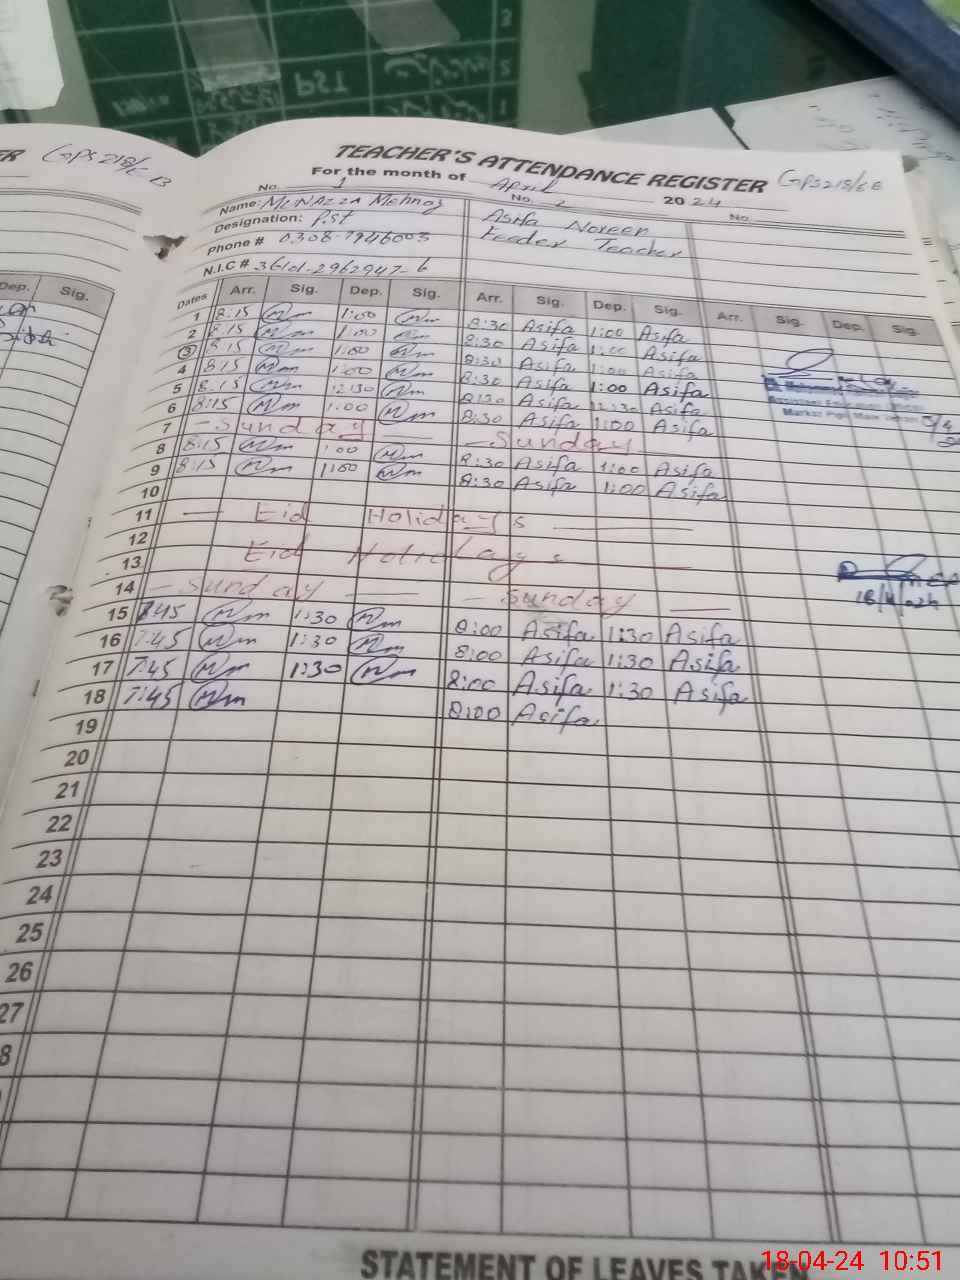 PST
GPS 218/EB
TEACHER'S ATTENDANCE REGISTER GPS 218/EB
For the month of April 2024
No. 1 No. 2 No.
Name: Munazza Mehnaz Asifa Noreen
Designation: P.st Feeder Teacher
Phone # 0308-7946003
N.I.C #
Dep. Sig.
Dates Arr. Sig. Dep. Sig. Arr. Sig. Dep. Sig. Arr. Sig. Dep. Sig.
1 8:15 1:00 8:30 Asifa 1:00 Asifa
2 8:15 1:00 8:30 Asifa 1:00 Asifa
3 8:15 1:00 8:30 Asifa 1:00 Asifa
4 8:15 1:00 8:30 Asifa 1:00 Asifa
5 8:15 12:30 8:30 Asifa 12:30 Asifa
6 8:15 1:00 8:30 Asifa 1:00 Asifa
7 - Sunday - Sunday
8 8:15 1:00 8:30 Asifa 1:00 Asifa
9 8:15 1:00 8:30 Asifa 1:00 Asifa
10
11 Eid Holidays
12
13 Eid Holidays
14 - Sunday - Sunday
15 7:45 1:30 8:00 Asifa 1:30 Asifa
16 7:45 1:30 8:00 Asifa 1:30 Asifa
17 7:45 1:30 8:00 Asifa 1:30 Asifa
18 7:45 8:00 Asifa
19
20
21
22
23
24
25
26
27
8
STATEMENT OF LEAVES TAKEN
18-04-24 10:51